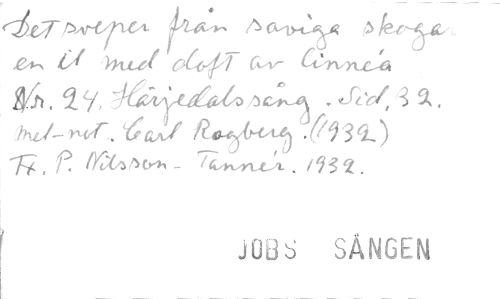 Det sveper från saviga skogar
en il med doft av linnéa
Nr. 24. Härjedalssång. Sid. 32.
mel-not. Carl Rogberg. (1932)
Tx. P. Nilsson-Tannér. 1932.
JOBS SÅNGEN